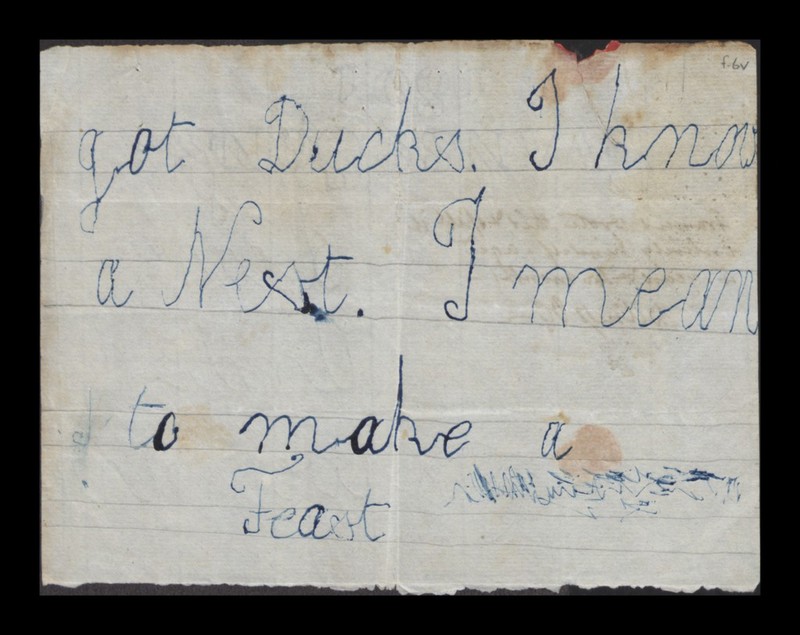 f.6v
got Ducks. I know
a Nest. I mean
to make a
Feast